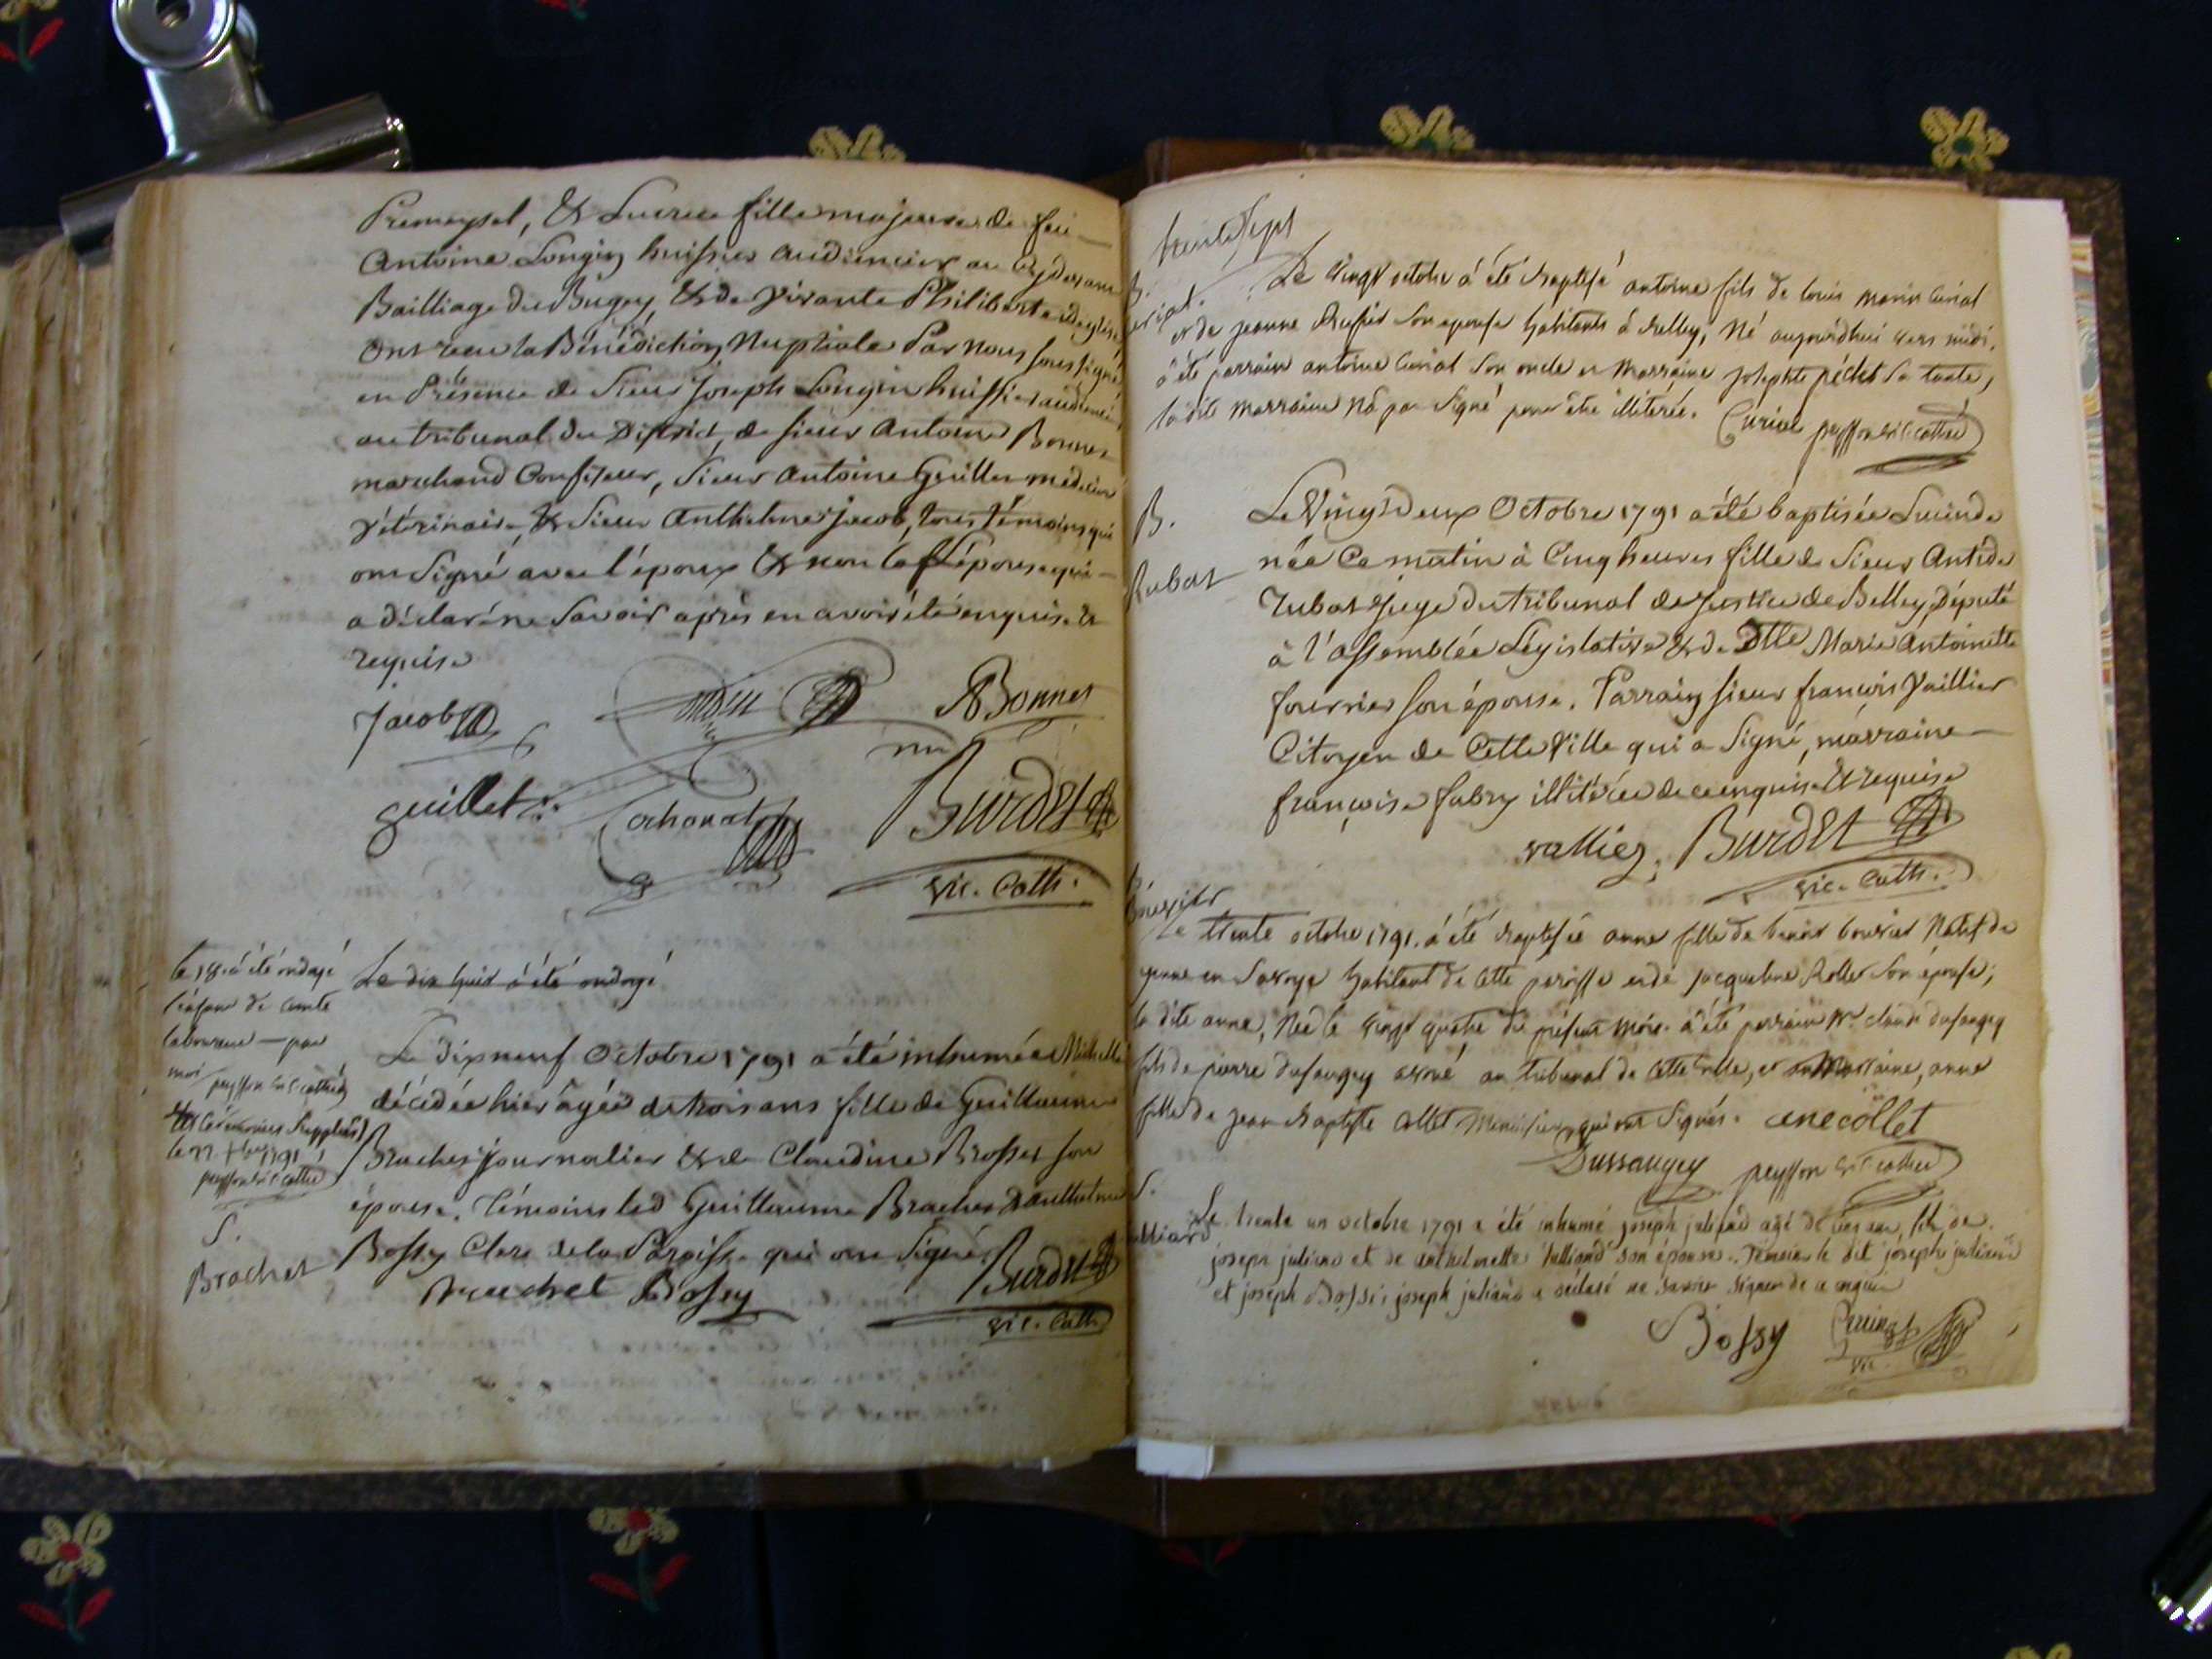 Premeysel, & Lucrece fille majeure de feu
Antoine Longin huissier audiencier au cy devant
Bailliage du Bugey, & de vivante Philiberte
Ont recu la Bénédiction Nuptiale Par nous soussigné
en Présence de Sieur Joseph Longin huissier audiencier
au tribunal du District, de sieur Antoine Bonnet
marchand Confiseur, Sieur Antoine Guillet medecin
vétérinaire & Sieur Anthelme Jacob, tous témoins qui
ont Signé avec l'époux & non l'épouse qui
a déclaré ne Savoir après en avoir été enquise &
requise
Jacob
ABonnet
guillet
Cochonat
Burdet
vic. Cath.
le 18 a été ondoyé
l'enfant de comte
laboureur — par
moi peysson vic cathed
les Cérémonies Supplées
le 1791
peysson vic cathed
Le dix huit à été ondoyé
Le dix neuf Octobre 1791 a été inhumée
décédée hier agée de trois ans fille de Guillaume
Brachet journalier & de Claudine Brosset son
épouse. Témoins led Guillaume Brachet & anthelme
Bossy Clerc de la Paroisse qui ont Signé
S.
Brachet
brachet Bossy Burdet
vic. Cath.
trente sept
B.
Le vingt octobre à été baptisé antoine fils de louis marin curial
et de jeanne son epouse habitants à belley, Né aujourdhui vers midi,
à été parrain antoine curial son oncle et marraine josephte péclet sa tante,
la dite marraine n'a pas signé pour être illiterée. Curial peysson vic cathed
B.
Rubat
Le Vingt deux Octobre 1791 a été baptisée Lucinde
née Ce matin à Cinq heures fille de Sieur Antide
Rubat Juge du tribunal de Justice de Belley, Député
à l'assemblée Législative & de Dlle Marie Antoinette
fournier son épouse. Parrain sieur françois Vaillier
Citoyen de Cette Ville qui a Signé, marraine
françoise fabry illitérée de ce enquise & requise
vallier Burdet
vic. Cath.
Le trente octobre 1791 à été baptisée anne fille de bouvier Natif de
yenne en Savoye habitant de cette paroisse et de jacqueline Rollet son épouse;
la dite anne, Née le vingt quatre du présent mois. à été parrain Mr claude dussaugey
fils de pierre dussaugey avoué au tribunal de cette ville, et marraine, anne
fille de jean baptiste collet Menuisier qui ont Signés. ane collet
Dussaugey peysson vic cathed
S.
Le trente un octobre 1791 a été inhumé joseph julliand agé de fils de
joseph julliand et de anthelmette julliand son épouse. Témoin le dit joseph julliand
et joseph Bossi; joseph juliand a déclaré ne savoir signer de ce enquis
Bossy
vic.